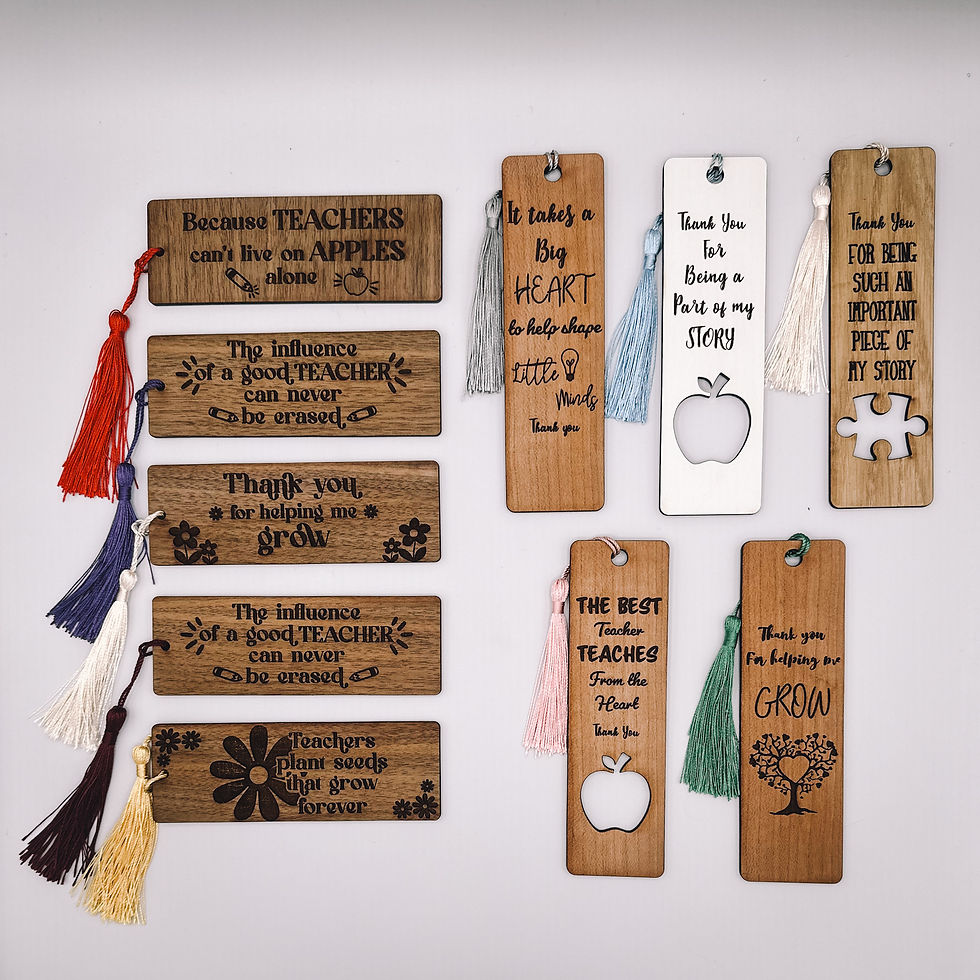 Because TEACHERS
can't live on APPLES
alone
The influence
of a good TEACHER
can never
be erased
Thank you
for helping me
grow
The influence
of a good TEACHER
can never
be erased
Teachers
plant seeds
that grow
forever
It takes a
Big
HEART
to help shape
Little
Minds
Thank you
Thank You
For
Being a
Part of my
STORY
Thank You
FOR BEING
SUCH AN
IMPORTANT
PIECE OF
MY STORY
THE BEST
Teacher
TEACHES
From the
Heart
Thank You
Thank you
For helping me
GROW